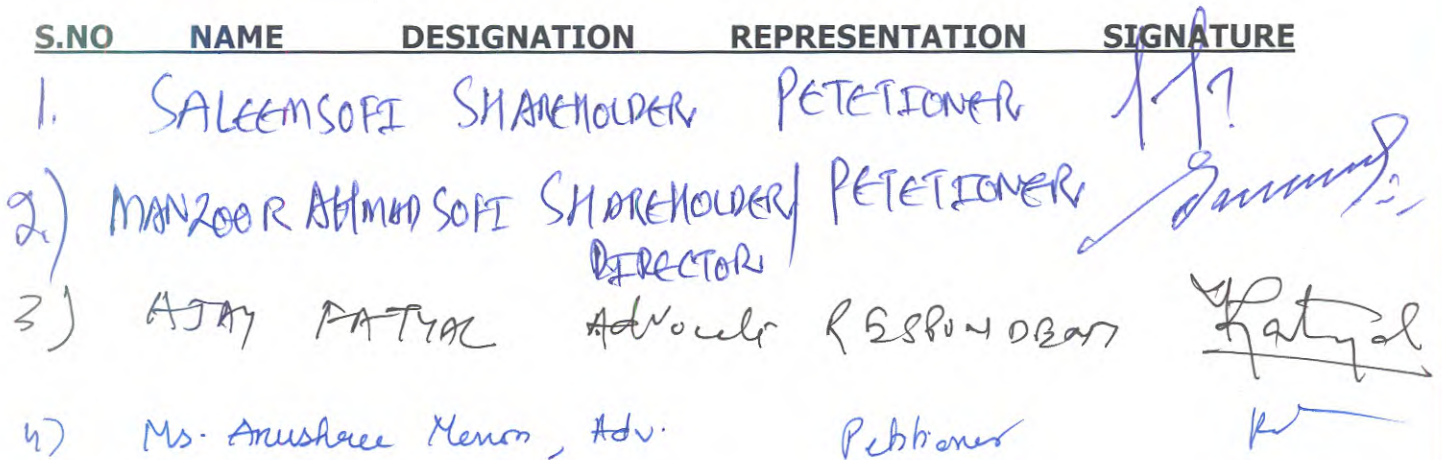 S.NO NAME DESIGNATION REPRESENTATION SIGNATURE
1. SALEEM SOFI SHAREHOLDER PETETIONER
2.) MANZOOR AHMAD SOFI SHAREHOLDER/ PETETIONER
DIRECTOR
3) AJAY KATYAL Advocate RESPONDENT Katyal
4) Ms. Anushree Menon, Adv. Petitioner